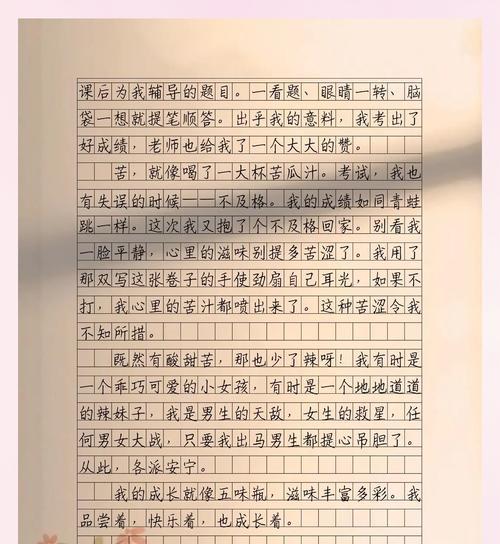 课后为我辅导的题目。一看题、眼睛一转、脑
袋一想就提笔顺答。出乎我的意料，我考出了
好成绩，老师也给我了一个大大的赞。
苦，就像喝了一大杯苦瓜汁。考试，我也
有失误的时候——不及格。我的成绩如同青蛙
跳一样。这次我又抱了个不及格回家。别看我
一脸平静，心里的滋味别提多苦涩了。我用了
那双写这张卷子的手使劲扇自己耳光，如果不
打，我心里的苦汁都喷出来了。这种苦涩令我
不知所措。
既然有酸甜苦，那也少了辣呀！我有时是
一个乖巧可爱的小女孩，有时是一个地地道道
的辣妹子，我是男生的天敌，女生的救星，任
何男女大战，只要我出马男生都提心吊胆了。
从此，各派安宁。
我的成长就像五味瓶，滋味丰富多彩。我
品尝着，快乐着，也成长着。